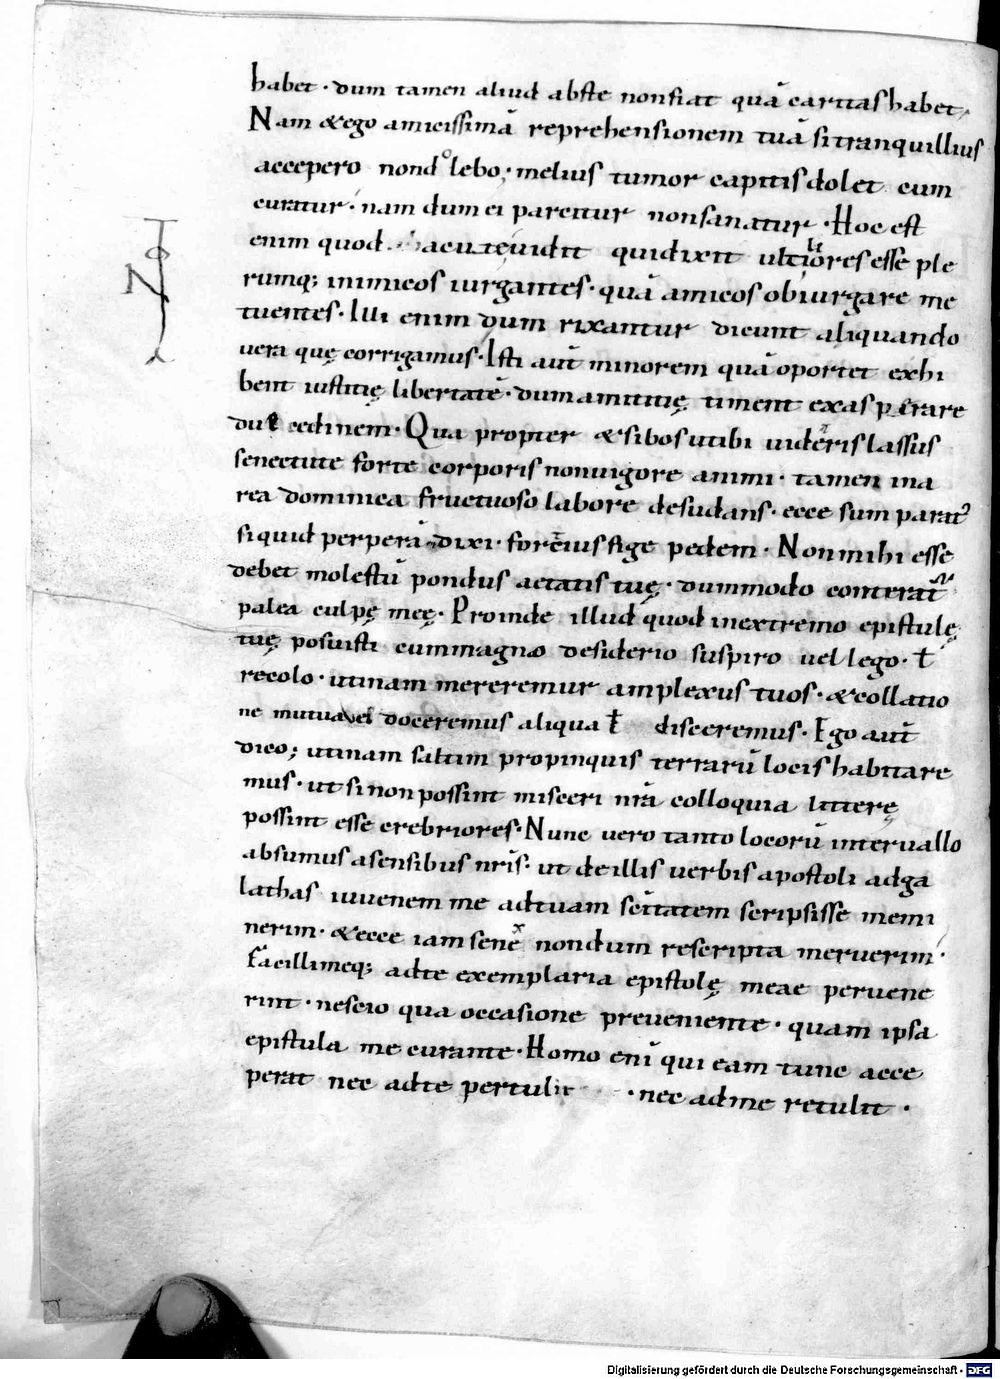 habet · dum tamen aliud abste nonfiat quā caritas habet,
Nam & ego amicissimā reprehensionem tuā si tranquillius
accepero nond olebo; melius tumor capitis dolet cum
curatur · nam dum ei parcitur non sanatur · Hoc est
enim quod acute uidit qui dixit utiliores esse ple
rumq; inimicos iurgantes · quā amicos obiurgare me
tuentes · Illi enim dum rixantur dicunt aliquando
uera quę corrigamus · Isti aūt minorem quā oportet exhi
bent iustitię libertatē · dum amicitię timent exasperare
dulcedinem · Qua propter & si bos ut tibi uideris lassus
senectute forte corporis non uigore animi · tamen in a
rea dominica fructuoso labore desudans · ecce sum parat᾿
si quid perperā dixi · fortius fige pedem · Non mihi esse
debet molestū pondus aetatis tuę · dummodo conterat᾿
palea culpę meę · Proinde illud quod in extremo epistulę
tuę posuisti cum magno desiderio suspiro uel lego · ł
recolo · utinam mereremur amplexus tuos · & collatio
ne mutua uel doceremus aliqua ł disceremus · Ego aūt
dico; utinam saltim propinquis terrarū locis habitare
mus · ut si non possint misceri nr̄a colloquia litterę
possint esse crebriores · Nunc uero tanto locorū interuallo
absumus a sensibus nr̄is · ut de illis uerbis apostoli ad ga
lathas iuuenem me ad tuam sc̄itatem scripsisse memi
nerim · & ecce iam senex nondum rescripta meruerim ·
facillimeq; ad te exemplaria epistolę meae peruene
rint · nescio qua occasione preueniente · quam ipsa
epistula me curante · Homo enī qui eam tunc acce
perat nec ad te pertulit · nec ad me retulit ·
Digitalisierung gefördert durch die Deutsche Forschungsgemeinschaft - DFG